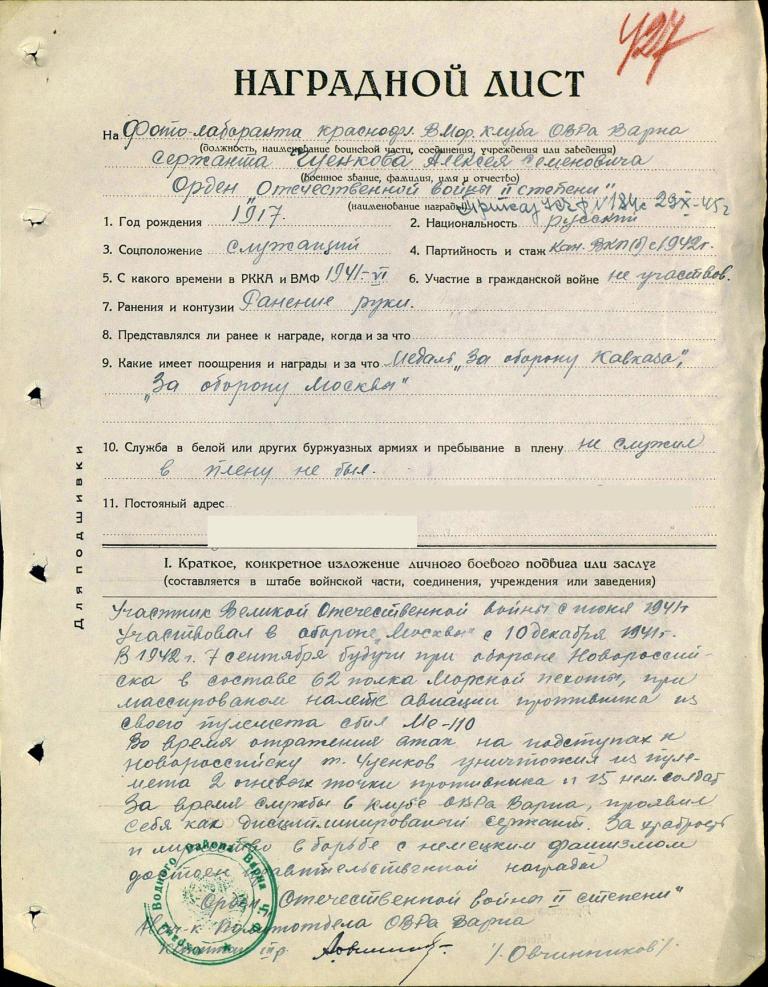 427
НАГРАДНОЙ ЛИСТ
На Фото-лаборанта краснофл. В.Мор. клуба ОВРа Варна
(должность, наименование воинской части, соединения, учреждения или заведения)
сержанта Чуенкова Алексея Семеновича
(военное звание, фамилия, имя и отчество)
Орден „Отечественной войны II степени"
(наименование награды) приказ № 184с 29 X-45г
1. Год рождения 1917. 2. Национальность русский
3. Соцположение служащий 4. Партийность и стаж кан. ВКП(б) с 1942г.
5. С какого времени в РККА и ВМФ 1941-VI 6. Участие в гражданской войне не участвов.
7. Ранения и контузии Ранение руки.
8. Представлялся ли ранее к награде, когда и за что
9. Какие имеет поощрения и награды и за что Медаль „За оборону Кавказа",
„За оборону Москвы"
10. Служба в белой или других буржуазных армиях и пребывание в плену не служил
в плену не был.
11. Постояный адрес
Для подшивки
I. Краткое, конкретное изложение личного боевого подвига или заслуг
(составляется в штабе войнской части, соединения, учреждения или заведения)
Участник Великой Отечественной войны с июня 1941г
Участвовал в обороне „Москвы" с 10 декабря 1941г.
В 1942г. 7 сентября будучи при обороне Новороссий-
ска в составе 62 полка Морской пехоты, при
массированом налете авиации противника из
своего пулемета сбил Ме-110
Во время отражения атак на подступах к
Новороссийску т. Чуенков уничтожил из пуле-
мета 2 огневых точки противника и 15 нем. солдат
За время службы в клубе ОВРа Варна, проявил
себя как дисциплинированый сержант. За храбрость
и в борьбе с немецким фашизмом
достоен правительственной награды
Орден „Отечественной войны II степени"
Нач-к Политотдела ОВРа Варна
Капитан III р. /Овчинников/.
Водного Района Варна Ч.Ф.